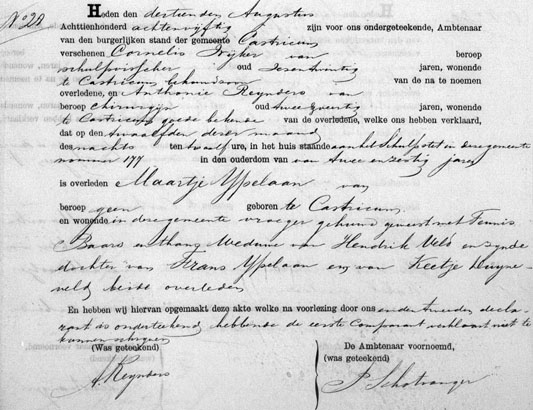 No 28
Heden den dertienden Augustus
Achttienhonderd achtenvijftig zijn voor ons ondergeteekende, Ambtenaar
van den burgerlijken stand der gemeente Castricum
verschenen Cornelis van beroep
schulpvisscher oud jaren, wonende
te Castricum bekende van de na te noemen
overledene, en Anthonie Reynders van
beroep chirurgijn oud jaren, wonende
te Castricum goede bekende van de overledene, welke ons hebben verklaard,
dat op den twaalfden dezer maand
des nachts ten twaalf ure, in het huis staande aan het Schulpstet in deze gemeente
nommer 177 in den ouderdom van van twee en zestig jaren
is overleden Maartje Ypelaan van
beroep geen geboren te Castricum
en wonende in deze gemeente vroeger gehuwd geweest met Teunis
Baars en thans Weduwe van Hendrik en zynde
dochter van Frans Ypelaan en van Keetje Duyne-
veld beide overleden
En hebben wij hiervan opgemaakt deze akte welke na voorlezing door ons en den tweeden decla-
rant is onderteekend, hebbende de eerste Comparant verklaart niet te
kunnen schryven
(Was geteekend) De Ambtenaar voornoemd,
(was geteekend)
A. Reynders
P. Schotvanger